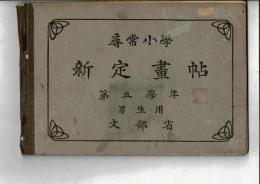 尋常小學
新定畫帖
第五學年
男生用
文部省